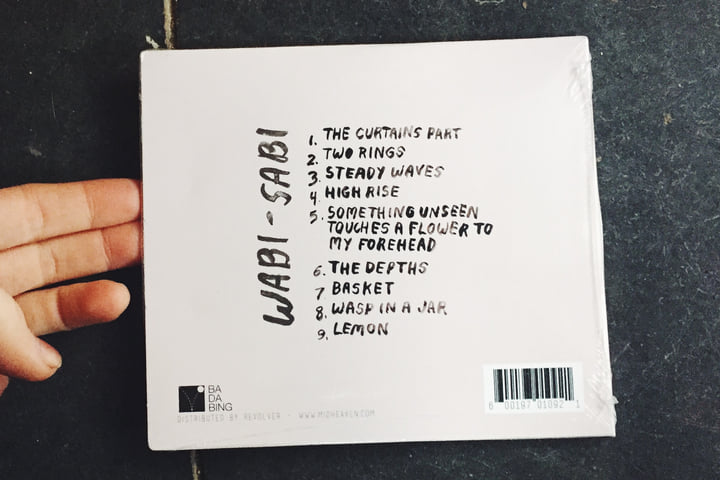 WABI-SABI
1. THE CURTAINS PART
2. TWO RINGS
3. STEADY WAVES
4. HIGH RISE
5. SOMETHING UNSEEN
TOUCHES A FLOWER TO
MY FOREHEAD
6. THE DEPTHS
7 BASKET
8. WASP IN A JAR
9. LEMON
BA
DA
BING
DISTRIBUTED BY REVOLVER - WWW.MIDHEAVEN.COM
6 00197 01092 1